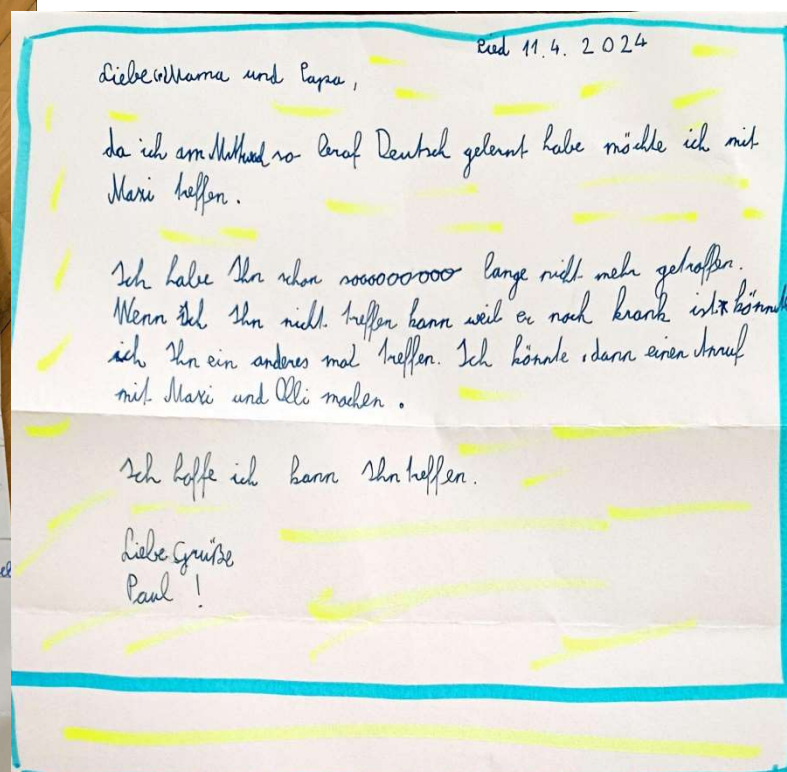 Ried 11.4. 2024
Liebe Mama und Papa,
da ich am Mittwoch so brav Deutsch gelernt habe möchte ich mit
Maxi treffen.
Ich habe Ihn schon sooooooooo lange nicht mehr getroffen.
Wenn ich Ihn nicht treffen kann weil er noch krank ist könnte
ich Ihn ein anderes mal treffen. Ich könnte dann einen Anruf
mit Maxi und Olli machen.
Ich hoffe ich kann Ihn treffen.
Liebe Grüße
Paul !